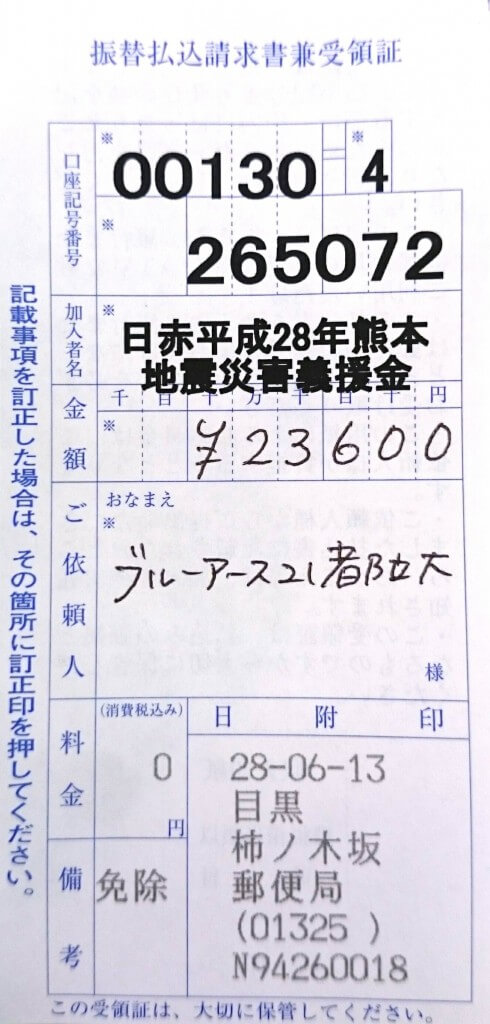 振替払込請求書兼受領証
口座記号番号
※ 00130 = ※ 4
※ 265072
加入者名
※
日赤平成28年熊本
地震災害義援金
金額
千 百 十 万 千 百 十 円
※ ¥23600
ご依頼人
おなまえ
※
ブルーアース21都立大
様
料金
(消費税込み)
0
円
日 附 印
28-06-13
目黒
柿ノ木坂
郵便局
(01325 )
N94260018
備考
免除
記載事項を訂正した場合は、その箇所に訂正印を押してください。
この受領証は、大切に保管してください。